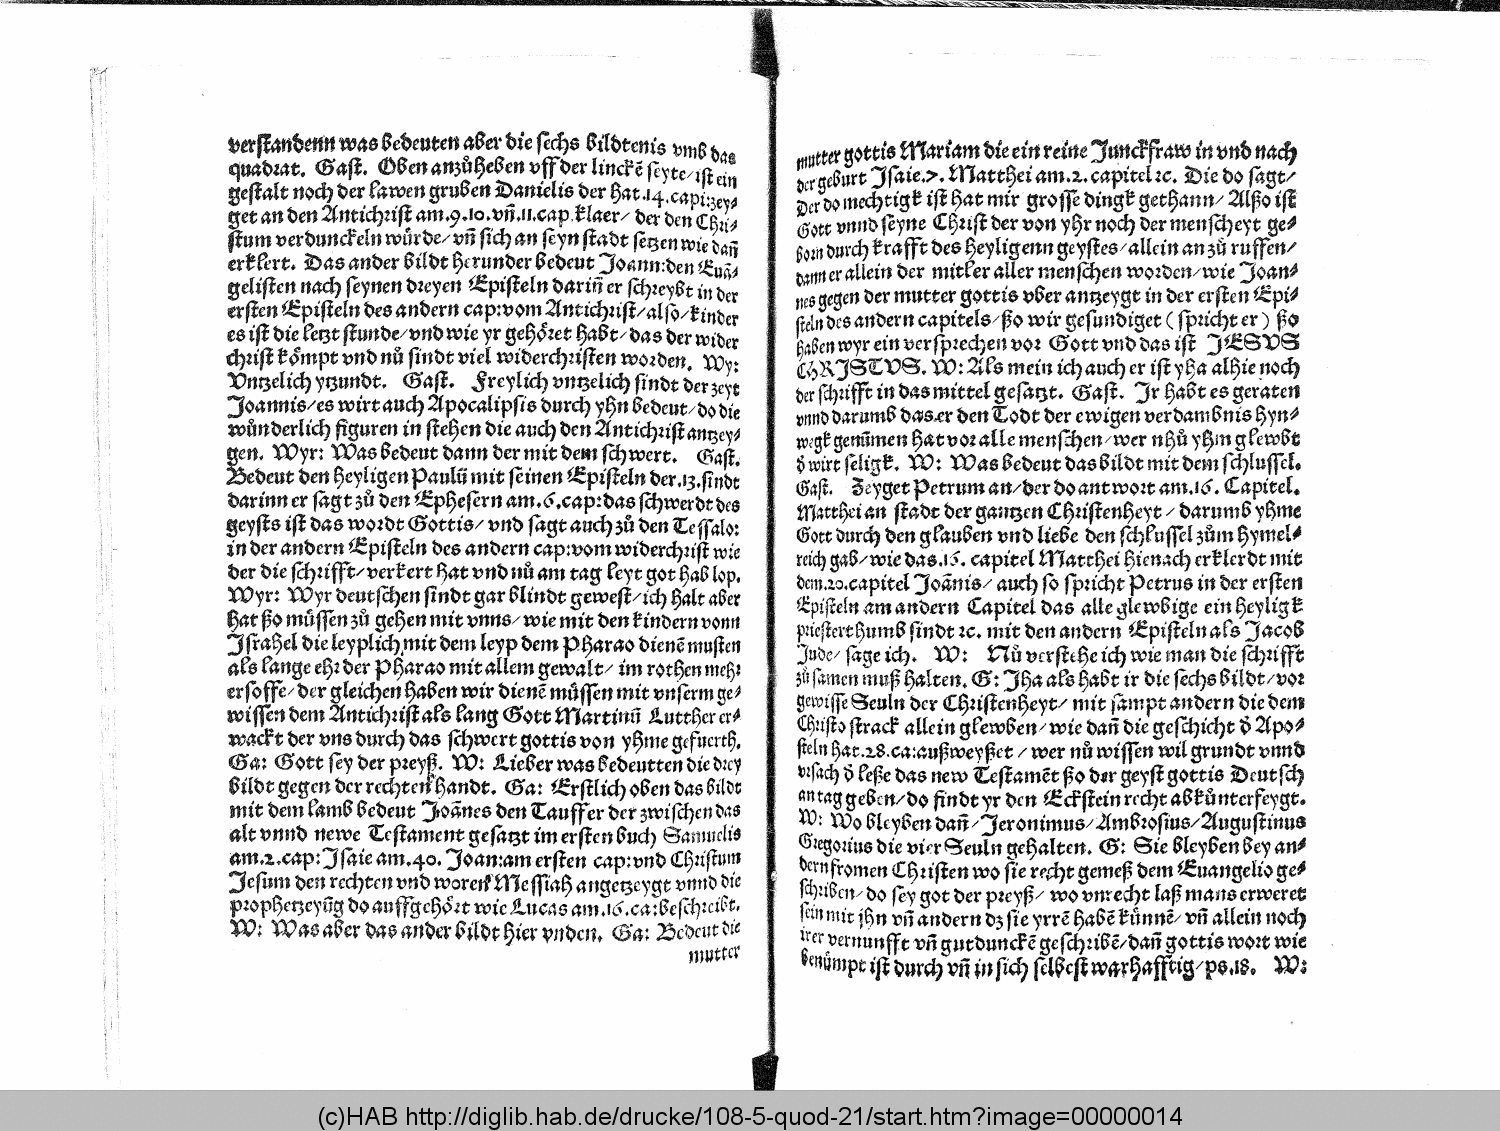 verstandenn was bedeuten aber die sechs bildtenis vmb das
quadrat. Gast. Oben anzůheben vff der linckē seyte/ist ein
gestalt noch der lawen gruben Danielis der hat.14.capi:zey⸗
get an den Antichrist am.9.10.vn̄.11.cap.klaer/ der den Chri⸗
stum verdunckeln würde/vn̄ sich an seyn stadt setzen wie dan̄
erklert. Das ander bildt herunder bedeut Joann:den Euā⸗
gelisten nach seynen dreyen Episteln darin̄ er schreybt in der
ersten Episteln des andern cap:vom Antichrist/also/kinder
es ist die letzt stunde/vnd wie yr gehöret habt/das der wider
christ kömpt vnd nů sindt viel widerchristen worden. Wy:
Vntzelich ytzundt. Gast. Freylich vntzelich sindt der zeyt
Joannis/es wirt auch Apocalipsis durch yhn bedeut/do die
wünderlich figuren in stehen die auch den Antichrist antzey⸗
gen. Wyr: Was bedeut dann der mit dem schwert. Gast.
Bedeut den heyligen Paulū mit seinen Episteln der.13.sindt
darinn er sagt zů den Ephesern am.6.cap:das schwerdt des
geysts ist das wordt Gottis/ vnd sagt auch zů den Tessalo:
in der andern Episteln des andern cap:vom widerchrist wie
der die schrifft/verkert hat vnd nů am tag leyt got hab lop.
Wyr: Wyr deutschen sindt gar blindt gewest/ich halt aber
hat ßo müssen zů gehen mit vnns/wie mit den kindern vonn
Israhel die leyplich mit dem leyp dem Pharao dienē musten
als lange ehr der Pharao mit allem gewalt/ im rothen mehr
ersoffe/der gleichen haben wir dienē müssen mit vnserm ge⸗
wissen dem Antichrist als lang Gott Martinū Lutther er⸗
wackt der vns durch das schwert gottis von yhme gefuerth.
Ga: Gott sey der preyß. W: Lieber was bedeutten die drey
bildt gegen der rechten handt. Ga: Erstlich oben das bildt
mit dem lamb bedeut Joānes den Tauffer der zwischen das
alt vnnd newe Testament gesatzt im ersten buch Samuelis
am.2.cap:Isaie am.40. Joan:am ersten cap:vnd Christum
Jesum den rechten vnd woren Messiah angetzeygt vnnd die
prophetzeyūg do auffgehört wie Lucas am.16.ca:beschreibt.
W: Was aber das ander bildt hier vnden. Ga: Bedeut die
mutter
mutter gottis Mariam die ein reine Junckfraw in vnd nach
der geburt Isaie.7. Matthei am.2.capitel ꝛc. Die do sagt/
Der do mechtigk ist hat mir grosse dingk gethann/ Alßo ist
Gott vnnd seyne Christ der von yhr noch der menscheyt ge⸗
born durch krafft des heyligenn geystes/allein an zů ruffen/
dann er allein der mitler aller menschen worden/wie Joan⸗
nes gegen der mutter gottis vber antzeygt in der ersten Epi⸗
steln des andern capitels/ßo wir gesundiget (spricht er) ßo
haben wyr ein versprechen vor Gott vnd das ist JESVS
ChRJSTVS. W: Als mein ich auch er ist yha alhie noch
der schrifft in das mittel gesatzt. Gast. Ir habt es geraten
vnnd darumb das er den Todt der ewigen verdambnis hyn⸗
wegk genūmen hat vor alle menschen/wer nhů yhm glewbt
d̉ wirt seligk. W: Was bedeut das bildt mit dem schlussel.
Gast. Zeyget Petrum an/der do antwort am.16. Capitel.
Matthei an stadt der gantzen Christenheyt / darumb yhme
Gott durch den glauben vnd liebe den schlussel zům hymel⸗
reich gab/wie das.16. capitel Matthei hienach erklerdt mit
dem.20.capitel Joānis/ auch so spricht Petrus in der ersten
Episteln am andern Capitel das alle glewbige ein heyligk
priesterthumb sindt ꝛc. mit den andern Episteln als Jacob
Jude/ sage ich. W: Nů verstehe ich wie man die schrifft
zů samen muß halten. G: Iha als habt ir die sechs bildt/vor
gewisse Seuln der Christenheyt/ mit sampt andern die dem
Christo strack allein glewben/wie dan̄ die geschicht d̉ Apo⸗
steln hat.28.ca:außweyßet / wer nů wissen wil grundt vnnd
vrsach d̉ leße das new Testamēt ßo der geyst gottis Deutsch
an tag geben/do findt yr den Eckstein recht abkünterfeygt.
W: Wo bleyben dan̄/Jeronimus/Ambrosius/Augustinus
Gregorius die vier Seuln gehalten. G: Sie bleyben bey an⸗
dern fromen Christen wo sie recht gemeß dem Euangelio ge⸗
schriben/do sey got der preyß/ wo vnrecht laß mans erweret
sein mit jhn vn̄ andern dz sie yrrē habē künnē/ vn̄ allein noch
irer vernunfft vn̄ gutdunckē geschribē/dan̄ gottis wort wie
benůmpt ist durch vn̄ in sich selbest warhafftig/ps.18. W:
(c)HAB http://diglib.hab.de/drucke/108-5-quod-21/start.htm?image=00000014